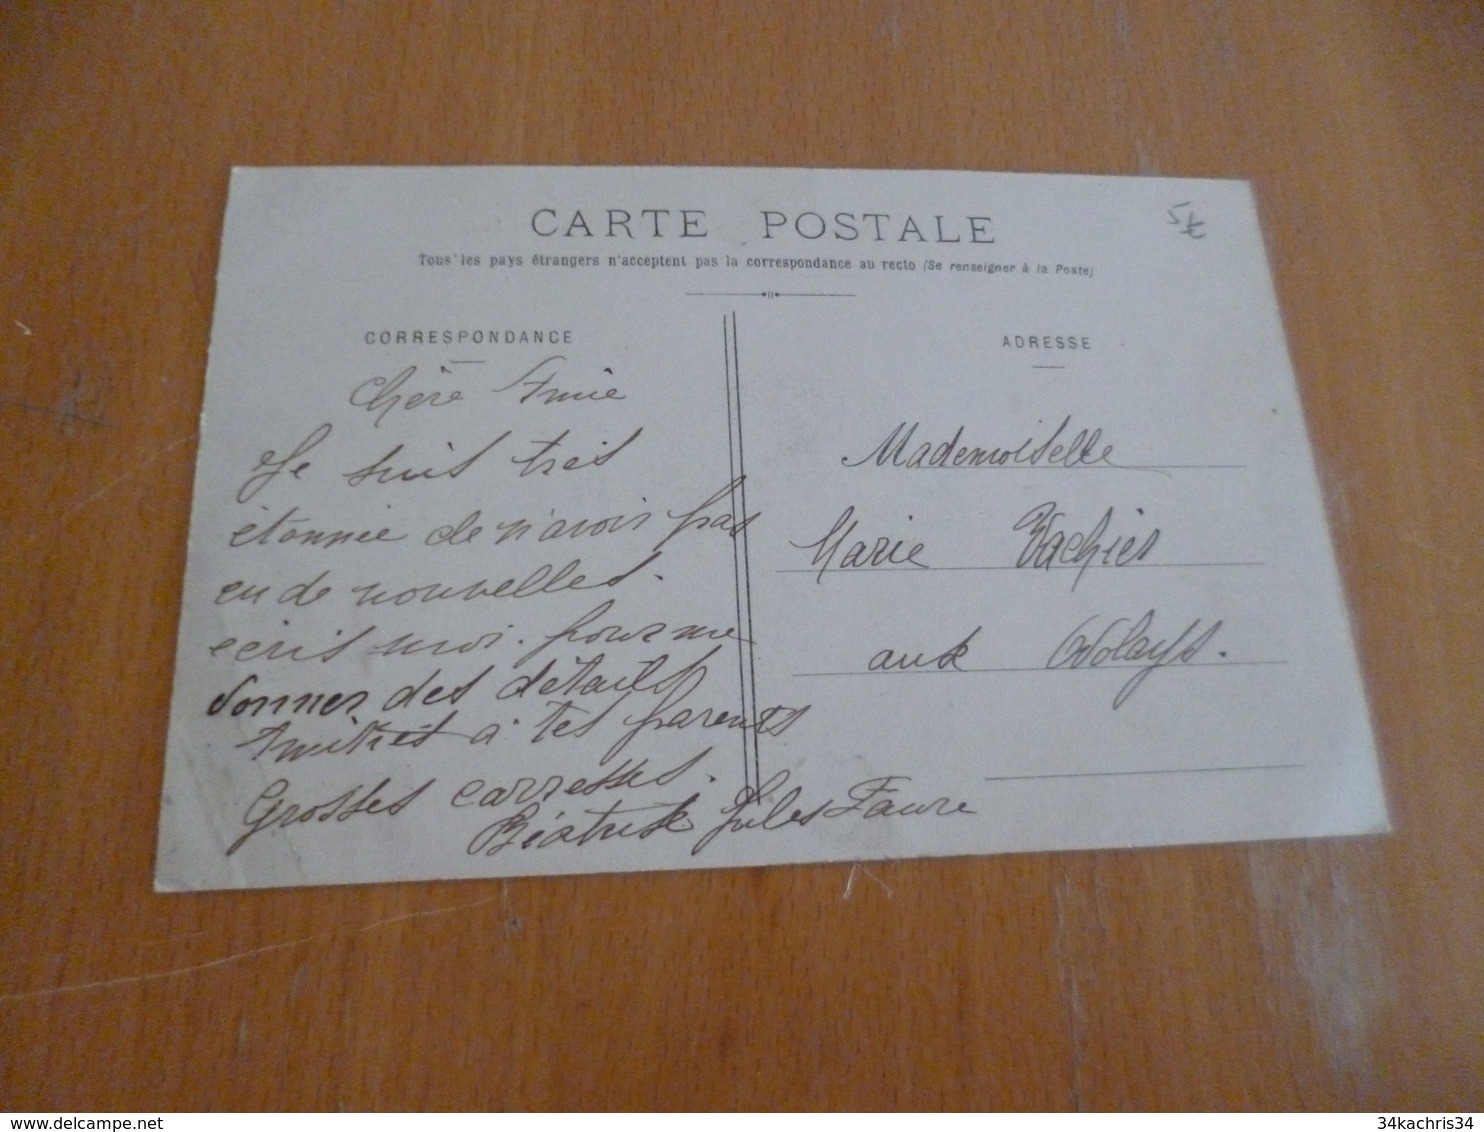 CARTE POSTALE
5€
Tous les pays étrangers n'acceptent pas la correspondance au recto (Se renseigner à la Poste)
CORRESPONDANCE
chère Amie
Je suis très
étonnée de n'avoir pas
eu de nouvelles.
écris moi. pour me
donner des détails
Amitiés à tes parents
Grosses carresses.
Béatrix Jules Faure
ADRESSE
Mademoiselle
Marie Vachier
aux
34kachris34
delcampe.net